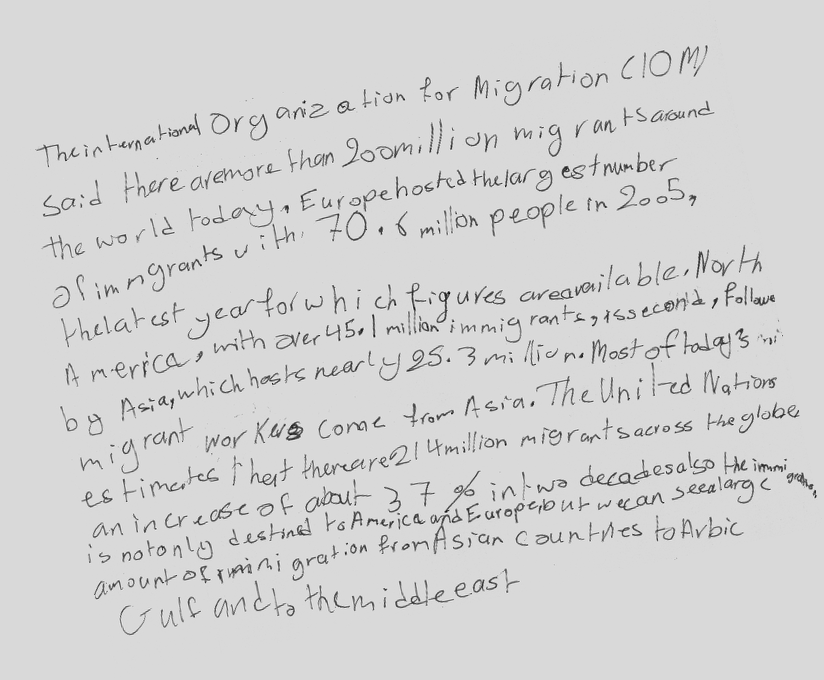 The international Organization for Migration (IOM)
said there are more than 200 million migrants around
the world today. Europe hosted the largest number
Of immgrants with 70.6 million people in 2005,
the latest year for which figures are available. North
America, with over 45.1 million immigrants, is second, followe
by Asia, which hosts nearly 25.3 million. Most of today's
migrant workers come from Asia. The United Nations
estimates that there are 214 million migrants across the globe
an increase of about 37% in two decades also the immigration
is not only destined to America and Europe but we can see a large
amount of immigration from Asian countries to Arbic
Gulf and to the middle east